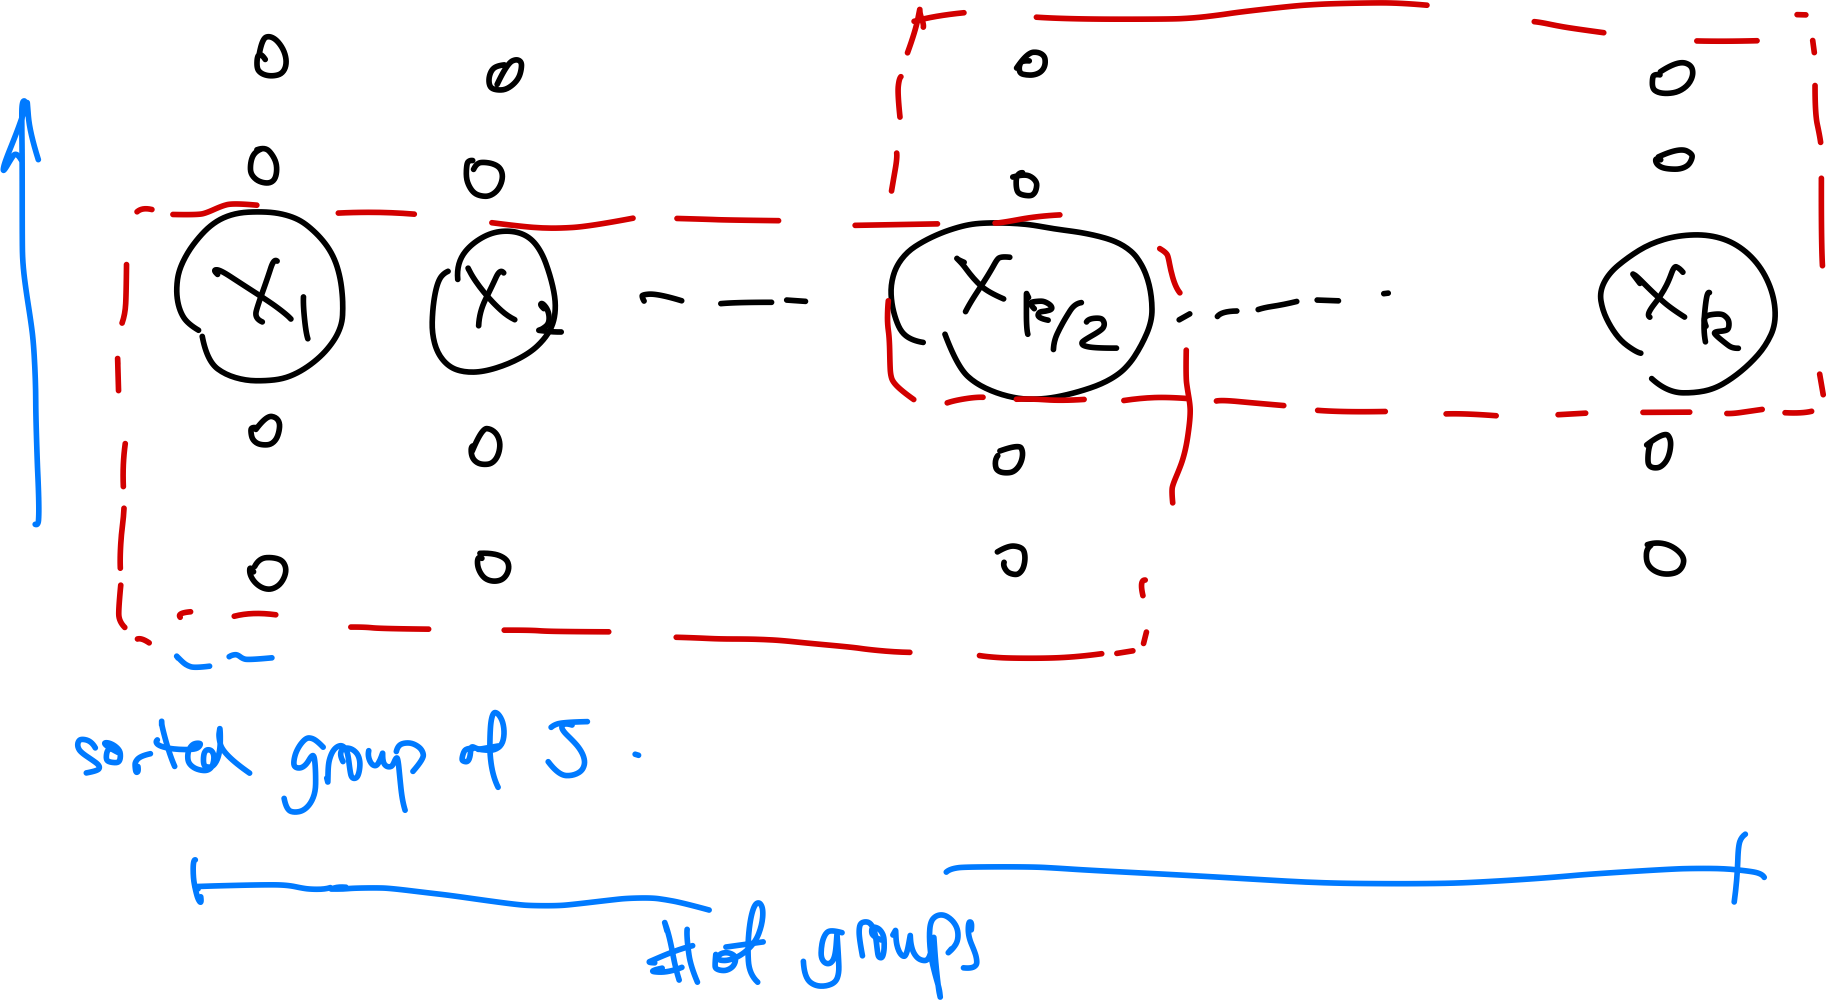 X1 X2 --- Xk/2 ---- Xk
sorted group of 5.
# of groups